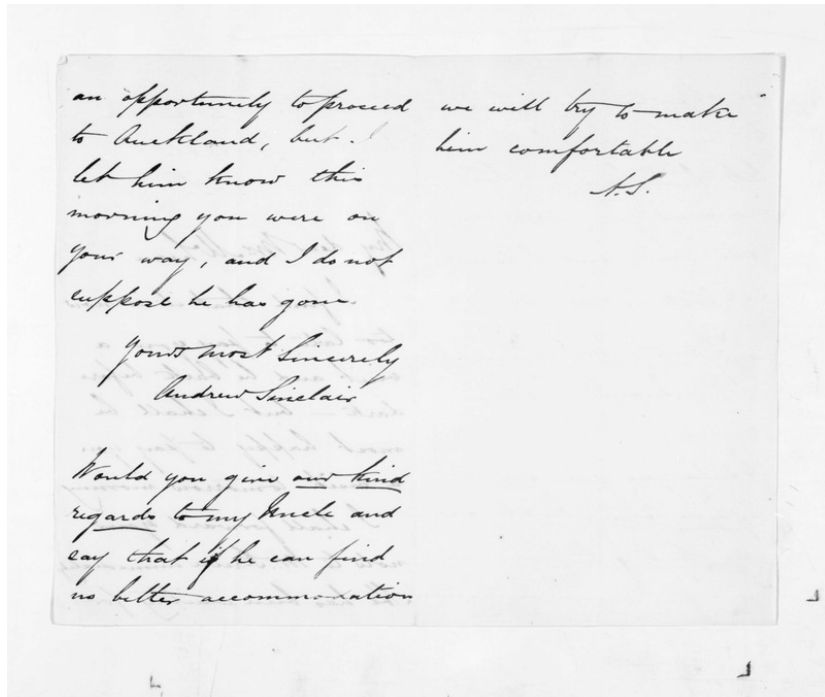 an opportunity to proceed
to Auckland, but I
let him know this
morning you were on
your way, and I do not
suppose he has gone.
Yours most Sincerely
Andrew Sinclair
Would you give our kind
regards to my Uncle and
say that if he can find
no better accommodation
we will try to make
him comfortable
A.S.